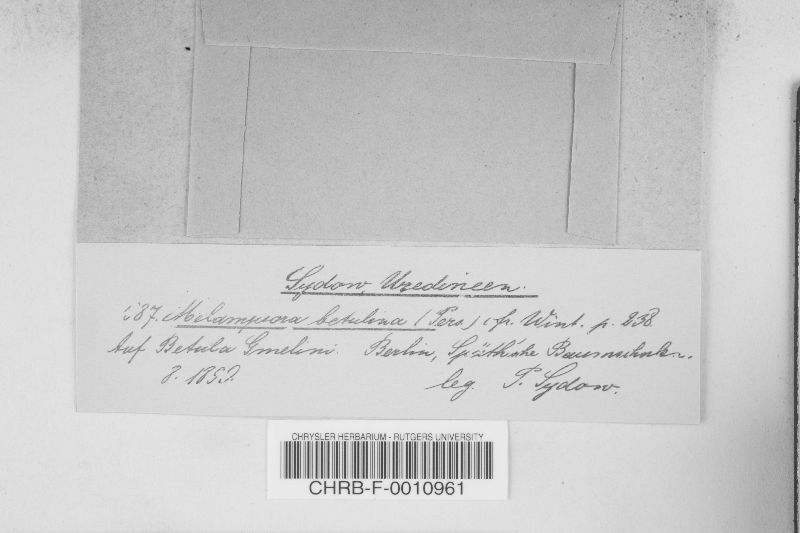 Sydow, Uredineen.
Melampsora betulina (Pers.) cfr. Wint. p. 238.
Auf Betula Gmelini. Berlin, Späth'sche Baumschulen.
leg. P. Sydow.
CHRYSLER HERBARIUM - RUTGERS UNIVERSITY
CHRB-F-0010961